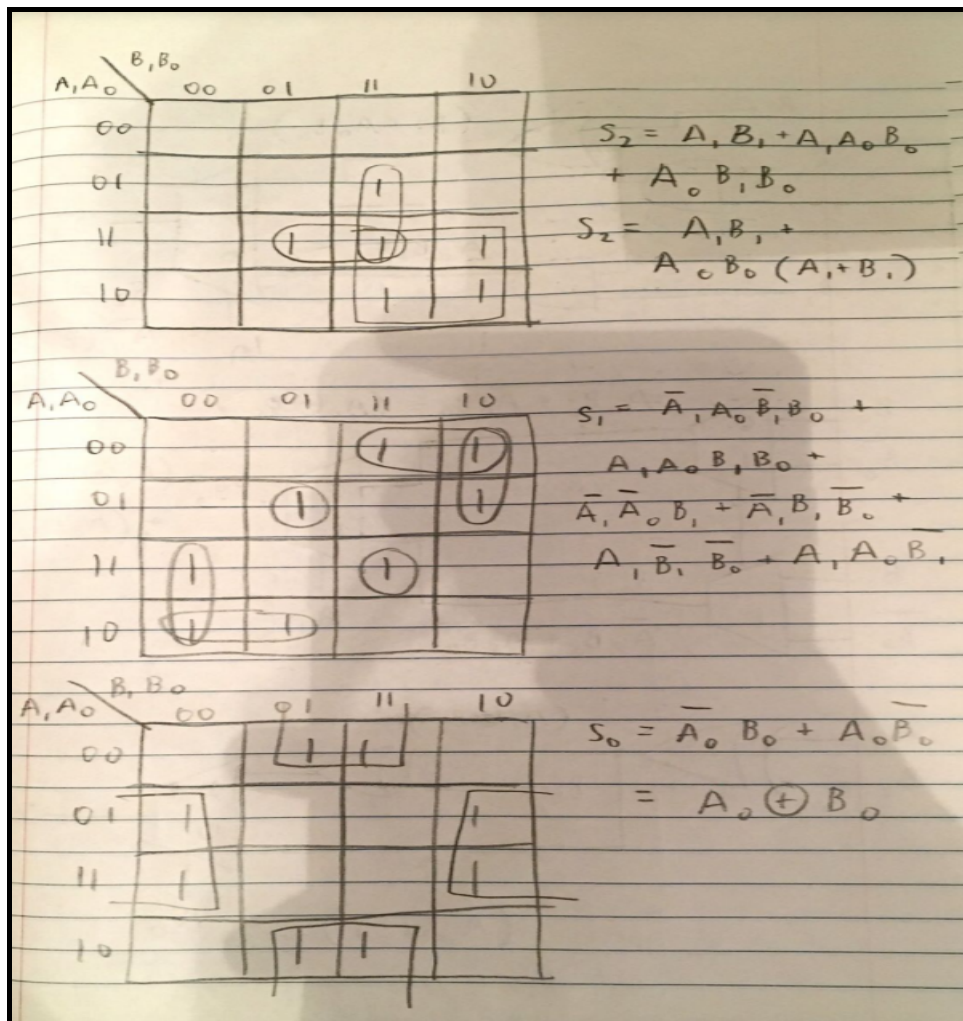 B₁B₀
A₁A₀ 00 01 11 10
00
01 1
11 1 1 1
10 1 1
S₂ = A₁B₁ + A₁A₀B₀
+ A₀B₁B₀
S₂ = A₁B₁ +
A₀B₀(A₁+B₁)
B₁B₀
A₁A₀ 00 01 11 10
00 1 1
01 1 1
11 1 1
10 1 1
S₁ = A̅₁A₀B̅₁B₀ +
A₁A₀B₁B₀ +
A̅₁A̅₀B₁ + A̅₁B₁B̅₀ +
A₁B̅₁B̅₀ + A₁A₀B̅₁
B₁B₀
A₁A₀ 00 01 11 10
00 1 1
01 1 1
11 1 1
10 1 1
S₀ = A̅₀B₀ + A₀B̅₀
= A₀ ⊕ B₀